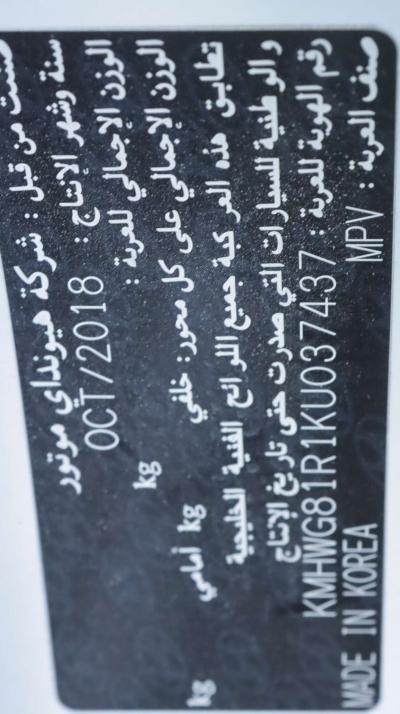 صنعت من قبل : شركة هيونداي موتور
سنة وشهر الإنتاج : OCT/2018
الوزن الإجمالي للعربة : kg
الوزن الإجمالي على كل محور: خلفي kg أمامي kg
تطابق هذه المركبة جميع اللوائح الفنية الخليجية
والوطنية للسيارات التي صدرت حتى تاريخ الإنتاج
رقم الهوية للعربة : KMHWG81R1KU037437
صنف العربة : MPV
MADE IN KOREA